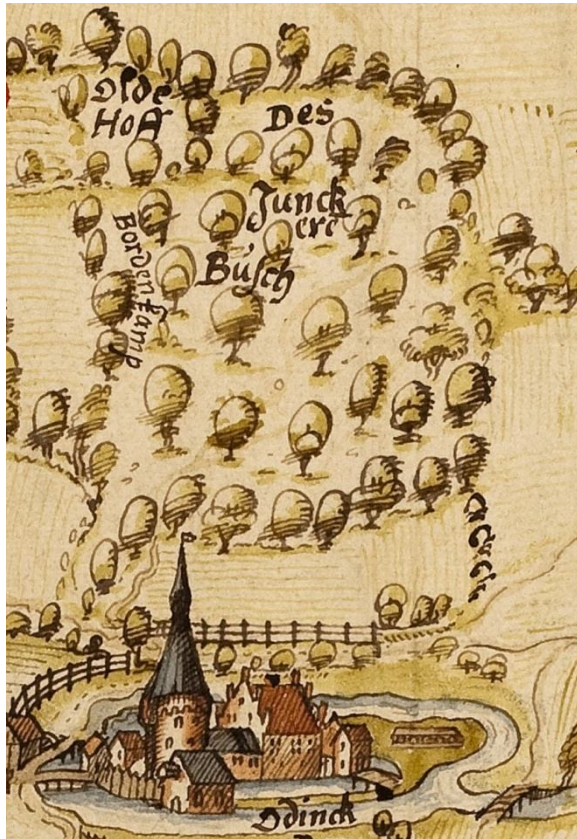 Olde
Hoff
Des
Junck
ere
Busch
Bordenkamp
Odinck